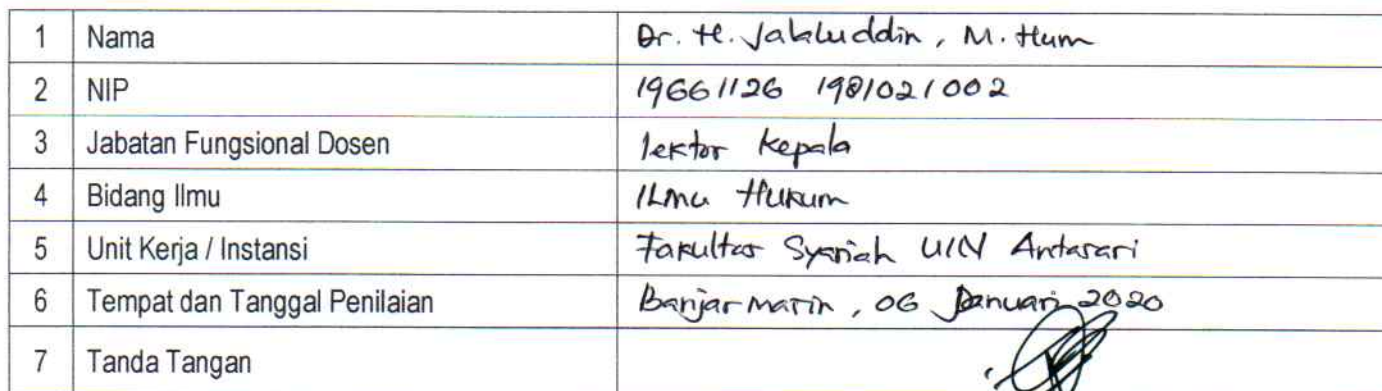 1 Nama Dr. H. Jalaluddin, M. Hum
2 NIP 19661126 198102 1 002
3 Jabatan Fungsional Dosen lektor Kepala
4 Bidang Ilmu ILmu Hukum
5 Unit Kerja / Instansi Fakultas Syariah UIN Antasari
6 Tempat dan Tanggal Penilaian Banjarmasin, 06 Januari 2020
7 Tanda Tangan